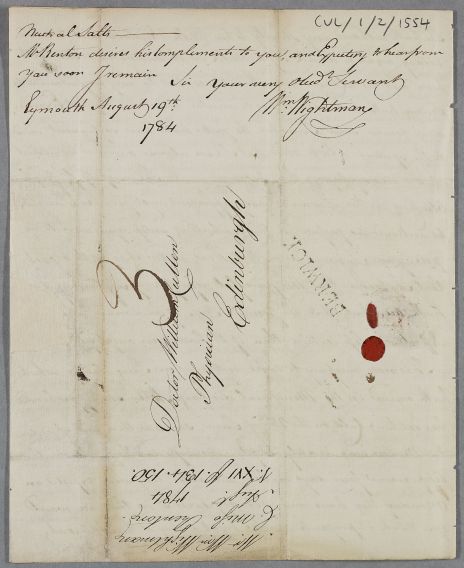 CUL/1/2/1554
Neutral Salts
Mr Renton desires his Complements to you, and Expecting to hear from
you soon I remain Sir Your very Obedt Servant
Eymouth August 19th Wm Wightman
1784
3
Doctor William Cullen
Physician
Edinburgh
BERWICK
Mr Wm Wightman
C. Miss Renton
Augt
1784
V. XVI p. 134. 150.